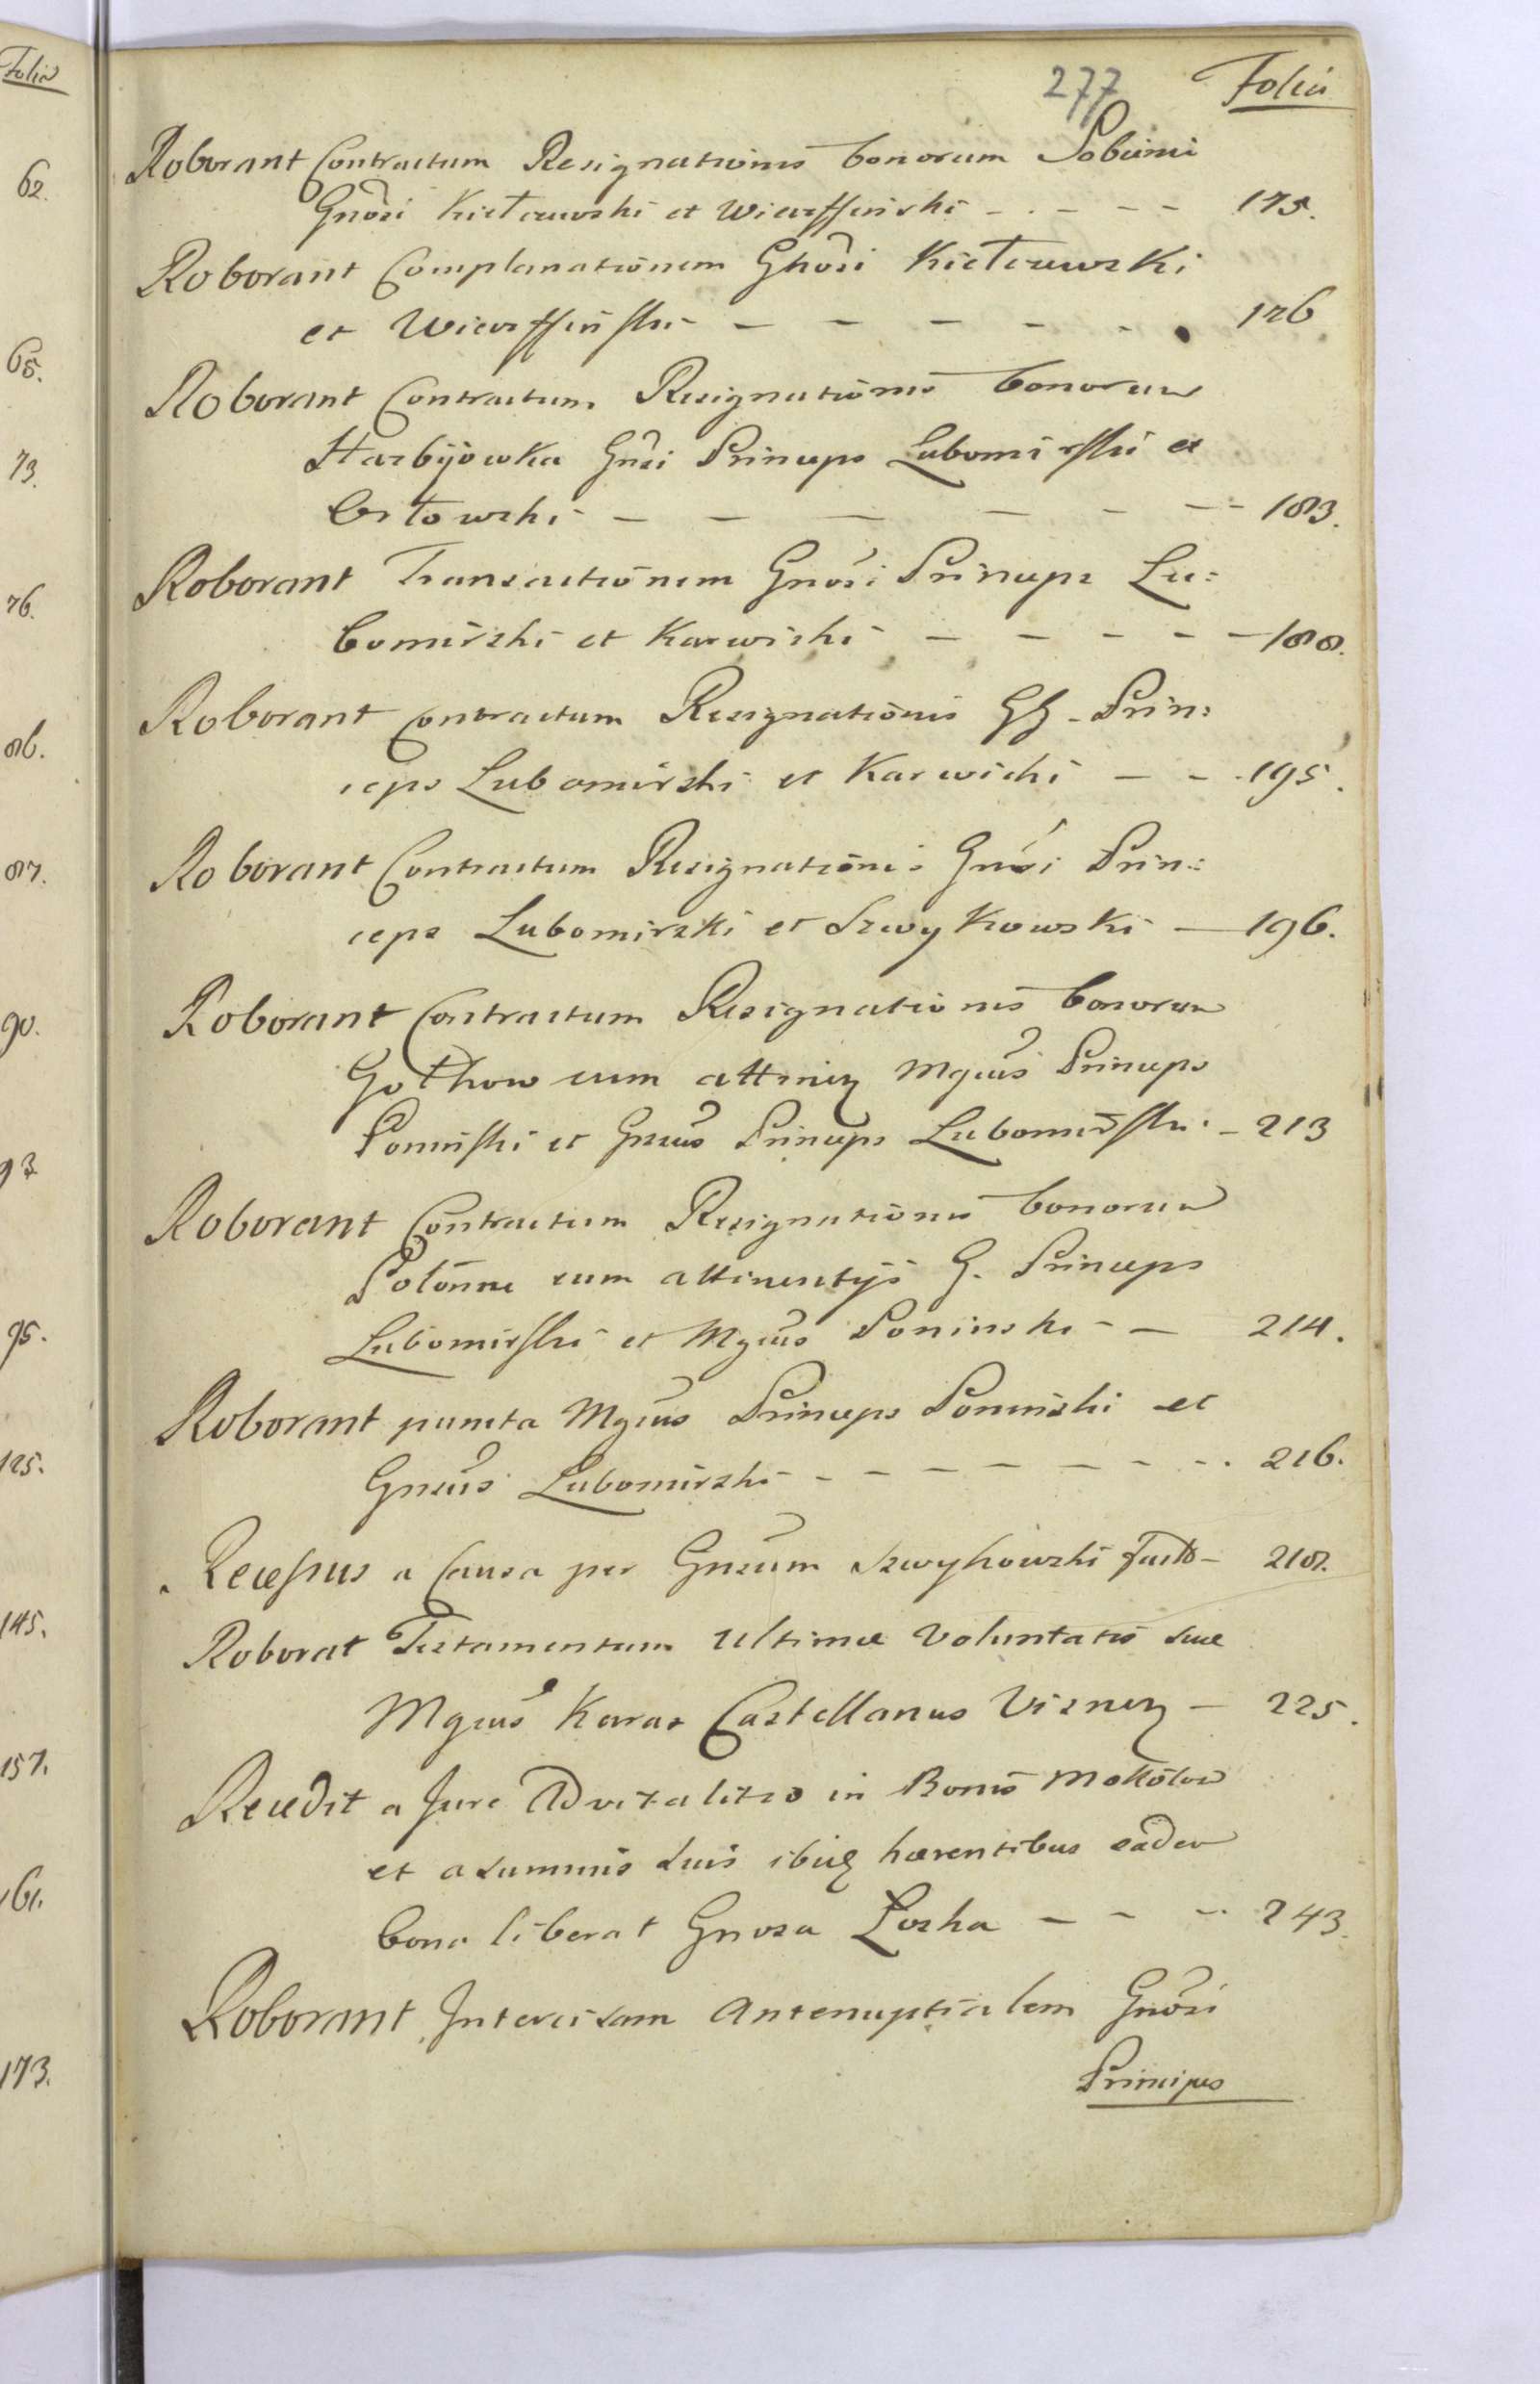 Folia
62.
65.
73.
76.
86.
87.
90.
93
95.
125.
145.
157.
161.
173.
277 Folia
Roborant Contractum Resignationis bonorum
Gnosi Kiełczewski et Wierffinski - - - - - 175.
Roborant Complanationem Gnosi Kiełczewski
et Wierffinski - - - - - - 176
Roborant Contractum Resignationis bonorum
Harbijowka Gnsi Princeps Lubomirski et
Orłowski - - - - - - - 183.
Roborant Transactionem Gnosi Princeps Lu:
bomirski et Karwicki - - - - - 188.
Roborant Contractum Resignationis GG. Prin:
ceps Lubomirski et Karwicki - - - 195.
Roborant Contractum Resignationis Gnosi Prin:
ceps Lubomirski et Szwykowski - 196.
Roborant Contractum Resignationis bonorum
cum attinen Mgcus Princeps
Poninski et Gnsus Princeps Lubomirski - 213
Roborant Contractum Resignationis bonorum
Połonne cum attinentijs G. Princeps
Lubomirski et Mgcus Poninski - - 214.
Roborant puncta Mgcus Princeps Poninski et
Gnsus Lubomirski - - - - - - - - 216.
Recessus a Causa per Gnsum Szwykowski factus - 218.
Roborat Testamentum Ultimæ Voluntatis suæ
Mgcus Karas Castellanus Visnen - 225.
Recedit a Jure Advitalitio in Bonis Mokotow
et a summis suis ibiq hærentibus eadem
bona liberat Gnosa Loska - - - 243.
Roborant Intercisam Antenuptialem Gnosi
Principes